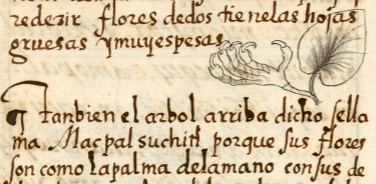 redezir flores dedos tienelas hojas
gruesas ymuyespesas
tanbien el arbol arriba dicho sella
ma Macpalsuchitl porque sus flores
son como lapalma delamano consus de